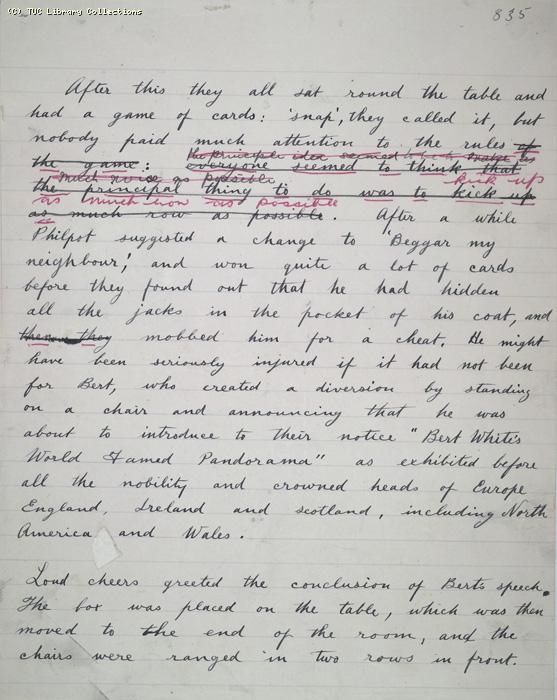 (C) TUC Library Collections
835
After this they all sat 'round the table and
had a game of cards: 'snap', they called it, but
nobody paid much attention to the rules of
the principle idea seemed
the game: everyone seemed to think that
much noise as possible kick up
the principal thing to do was to kick up
as much row as possible
as much row as possible. After a while
Philpot suggested a change to 'Beggar my
neighbour', and won quite a lot of cards
before they found out that he had hidden
all the jacks in the pocket of his coat, and
they mobbed him for a cheat. He might
have been seriously injured if it had not been
for Bert, who created a diversion by standing
on a chair and announcing that he was
about to introduce to their notice "Bert White's
World Famed Pandorama" as exhibited before
all the nobility and crowned heads of Europe
England, Ireland and Scotland, including North
America and Wales.
Loud cheers greeted the conclusion of Bert's speech.
The box was placed on the table, which was then
moved to the end of the room, and the
chairs were ranged in two rows in front.